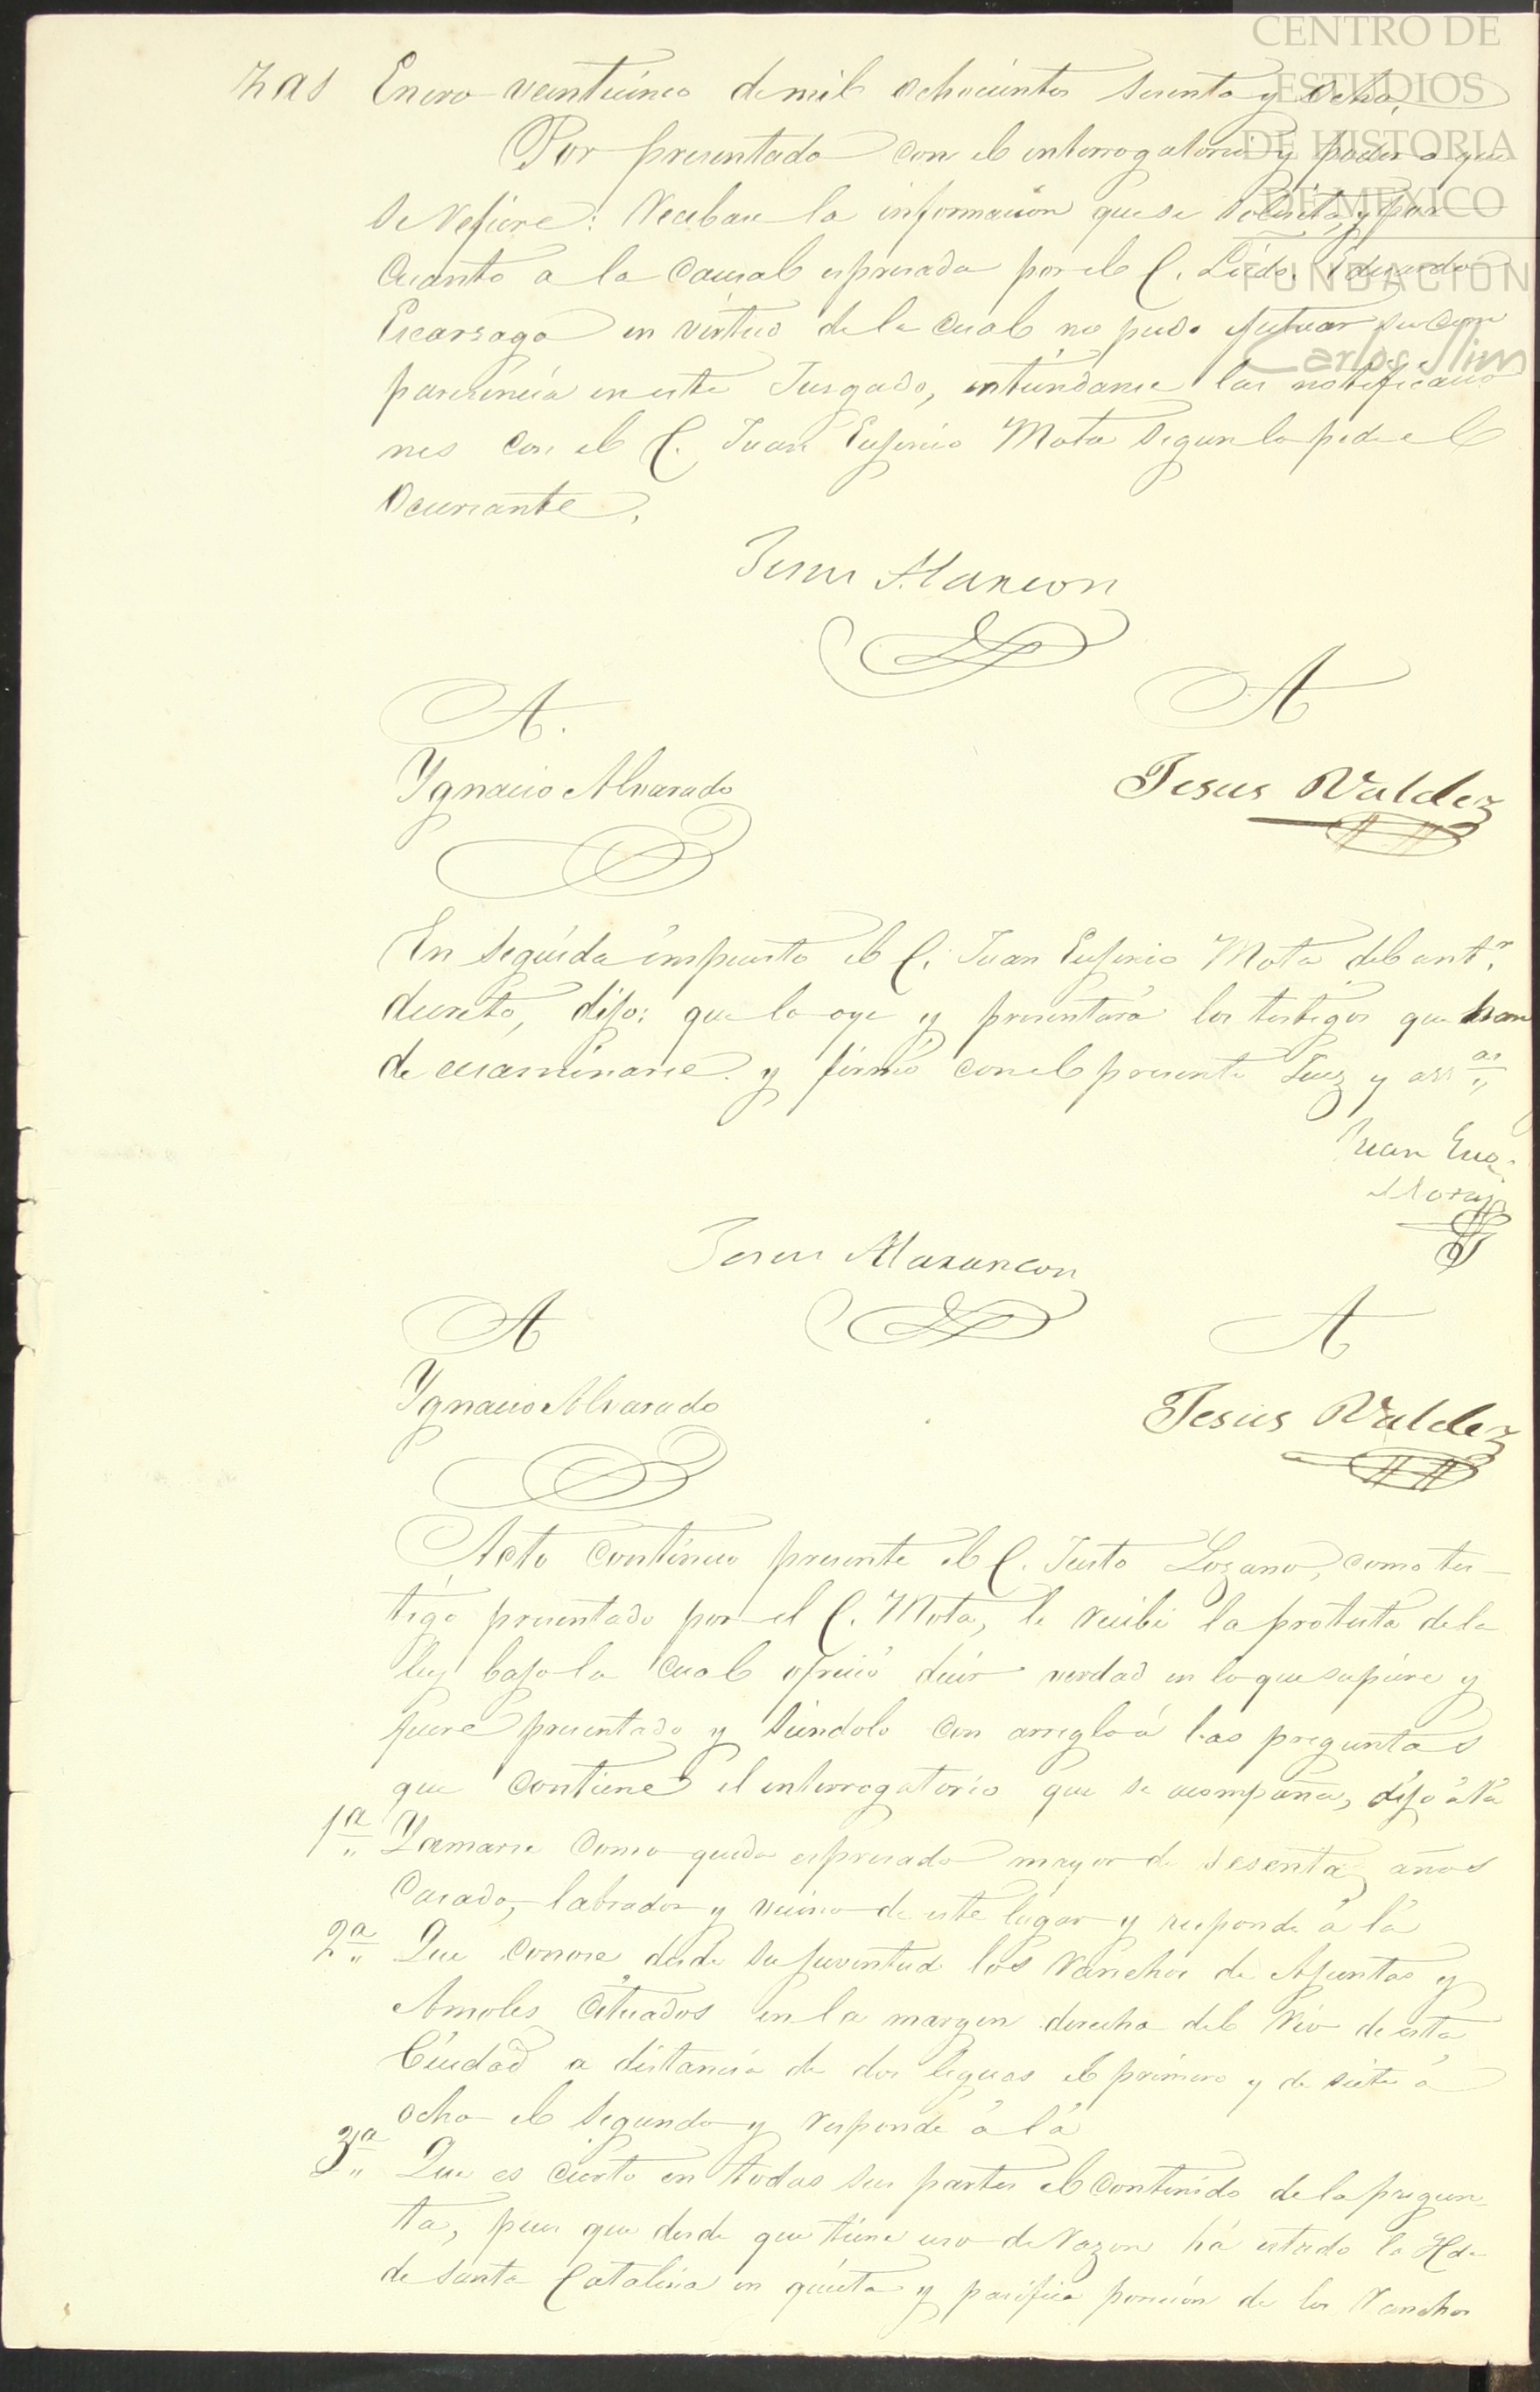 CENTRO DE
ESTUDIOS
DE HISTORIA
DE MEXICO
FUNDACIÓN
Carlos Slim
Enero veinticinco de mil ochocientos sesenta y ocho.
Por presentado con el interrogatorio y poder a que
se refiere: Recibase la informacion que se solicita, y por
cuanto a la causal espresada por el C. Licdo. Eduardo
Escarsaga en virtud de la cual no pudo efectuar su com
parecencia en este Jusgado, entiendanse las notificacio
nes con el C. Juan Eugenio Mota segun lo pide el
Ocursante.
A.
A
Ygnacio Alvarado
Jesus Valdez
En seguida impuesto el C. Juan Eugenio Mota del antr.
decreto, dijo: que lo oye y presentará los testigos que han
de ecsaminarse y firmó con el presente Juez y ass.as
Juan Eug.
Jesus Mazancon
A
A
Ygnacio Alvarado
Jesus Valdez
Acto continuo presente el C. Justo Lozano, como tes-
tigo presentado por el C. Mota, le recibi la protesta de la
ley bajo la cual ofreció decir verdad en lo que supiere y
fuere presentado y siendolo con arreglo á las preguntas
que contiene el interrogatorio que se acompaña, dijo á la
1a Llamarse como queda espresado mayor de sesenta años
Casado, labrador y vecino de este lugar y responde á la
2a Que conoce desde su juventud los Ranchos de Ajuntas y
Amoles cituados en la margen derecha del Rio de esta
Ciudad a distancia de dos leguas el primero y de siete á
ocho el segundo y responde á la
3a Que es cierto en todas sus partes el contenido de la pregun
ta, pues que desde que tiene uso de razon há estado la Hda
de Santa Catalina en quieta y pacifica posecion de los Ranchos